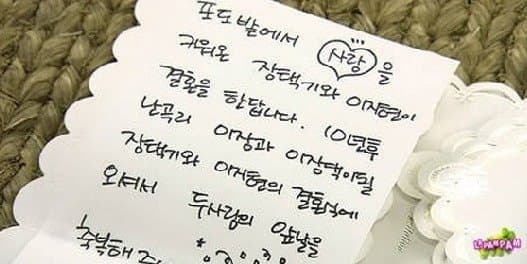 포도밭에서 사랑을
키워온 장택기와 이지현이
결혼을 한답니다. 10년후
난곡리 이장과 이장댁이될
장택기와 이지현의 결혼식에
오셔서 두사람의 앞날을
축복해